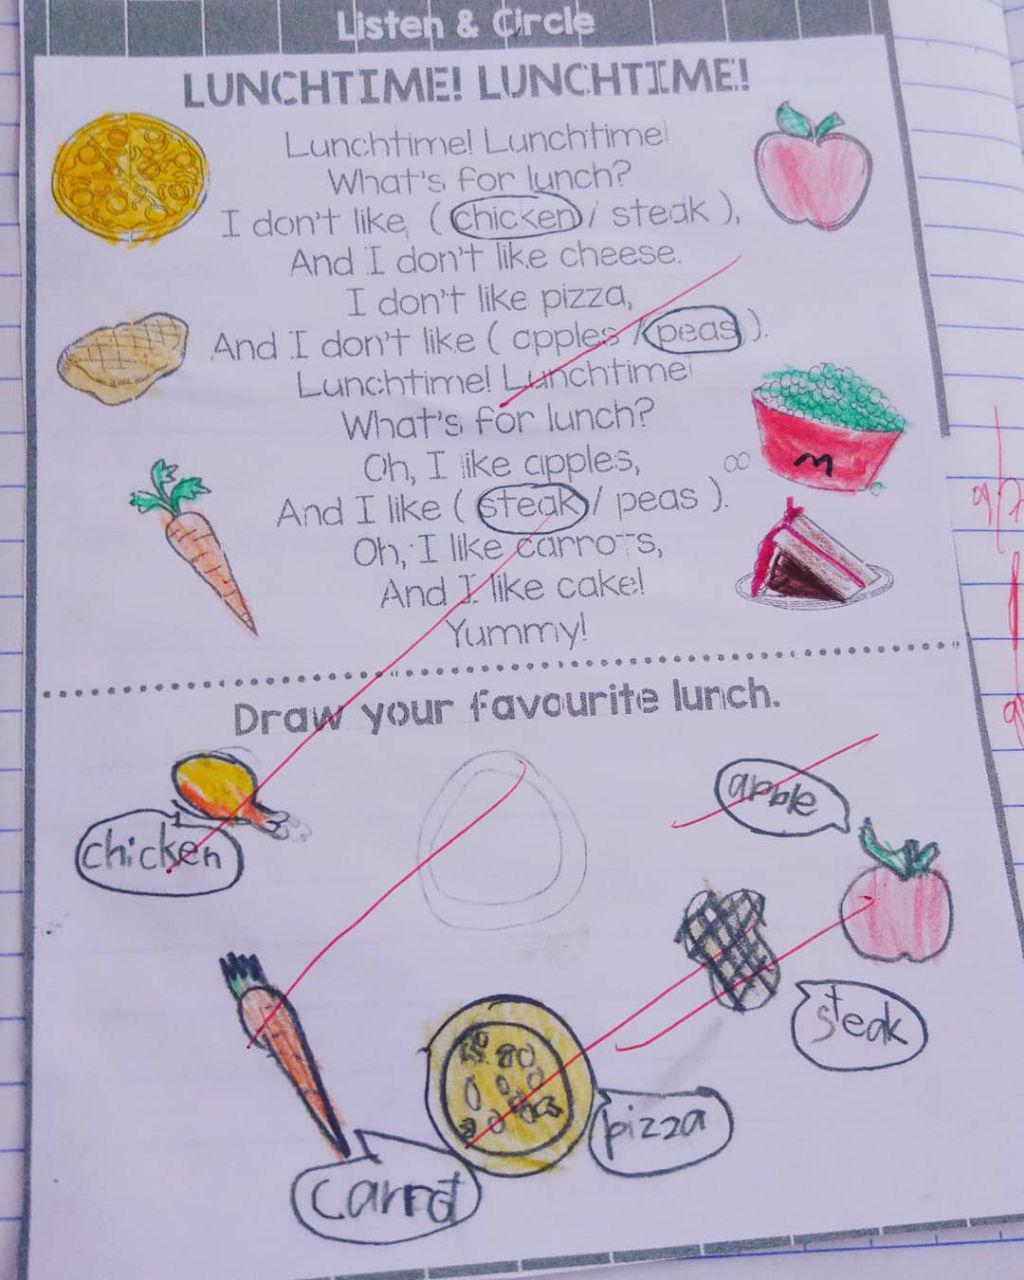 Listen & Circle
LUNCHTIME! LUNCHTIME!
Lunchtime! Lunchtime!
What's for lunch?
I don't like ( chicken / steak ),
And I don't like cheese.
I don't like pizza,
And I don't like ( apples / peas ).
Lunchtime! Lunchtime!
What's for lunch?
Oh, I like apples,
And I like ( steak / peas ).
Oh, I like carrots,
And I like cake!
Yummy!
Draw your favourite lunch.
apple
chicken
steak
pizza
carrot